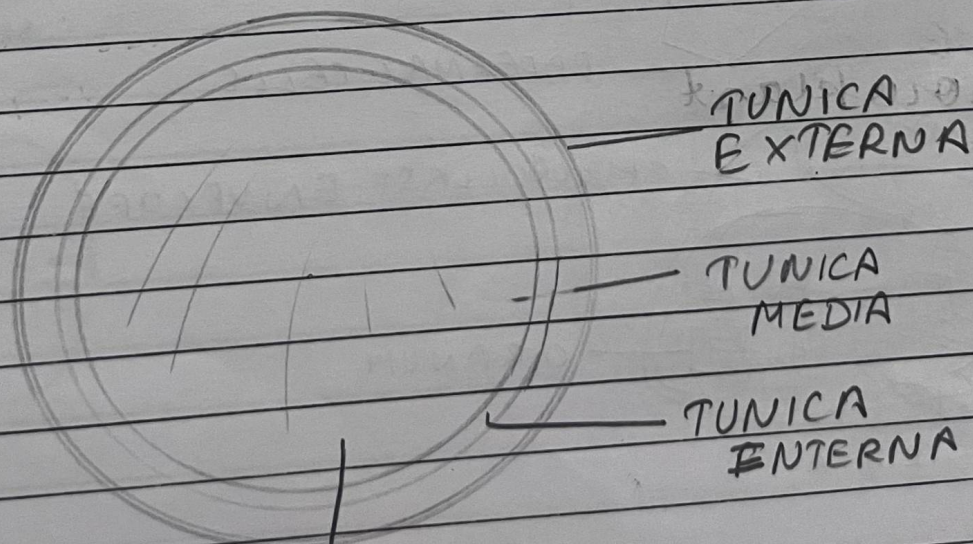 TUNICA
EXTERNA
TUNICA
MEDIA
TUNICA
ENTERNA